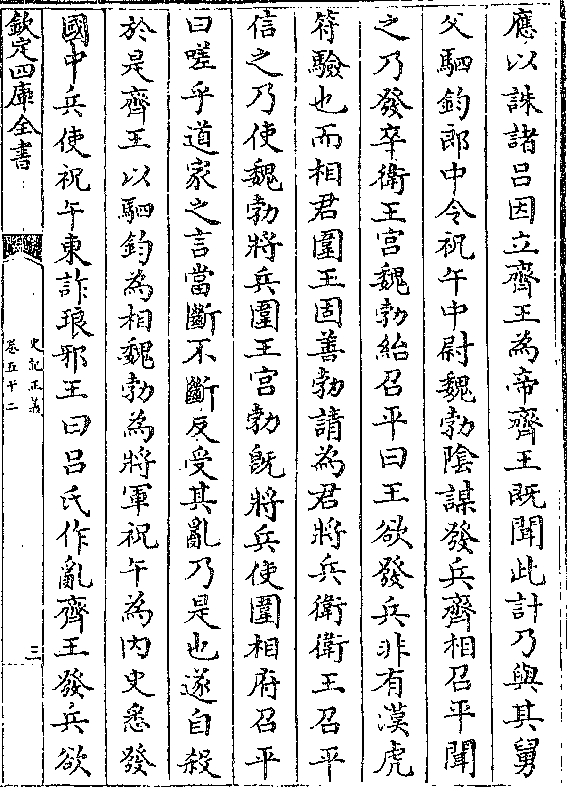 應以誅諸呂因立齊王為帝齊王既聞此計乃與其舅
父駟鈞郎中令祝午中尉魏勃隂謀發兵齊相召平聞
之乃發卒衛王宫魏勃紿召平曰王欲發兵非有漢虎
符驗也而相君圍王固善勃請為君將兵衛衛王召平
信之乃使魏勃將兵圍王宫勃既將兵使圍相府召平
曰嗟乎道家之言當斷不斷反受其亂乃是也遂自殺
於是齊王以駟鈞為相魏勃為將軍祝午為内史悉發
國中兵使祝午東詐琅邪王曰呂氏作亂齊王發兵欲
欽定四庫全書
史記正義
卷五十二
三